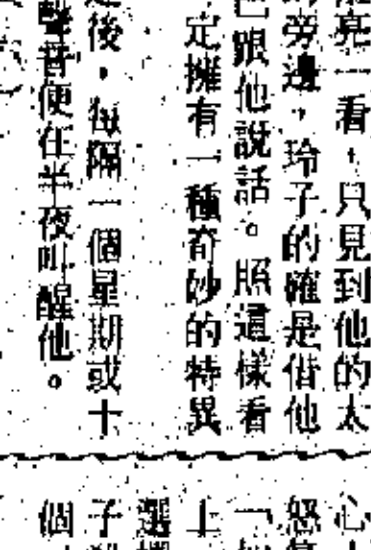 亮一看，只見到他的太
旁邊，玲子的確是借他
跟他說話。照這樣看
定擁有一種奇妙的特異
後，每隔一個星期或十
聲音便在半夜叫醒他。
心
怒
「
上
選
子
個